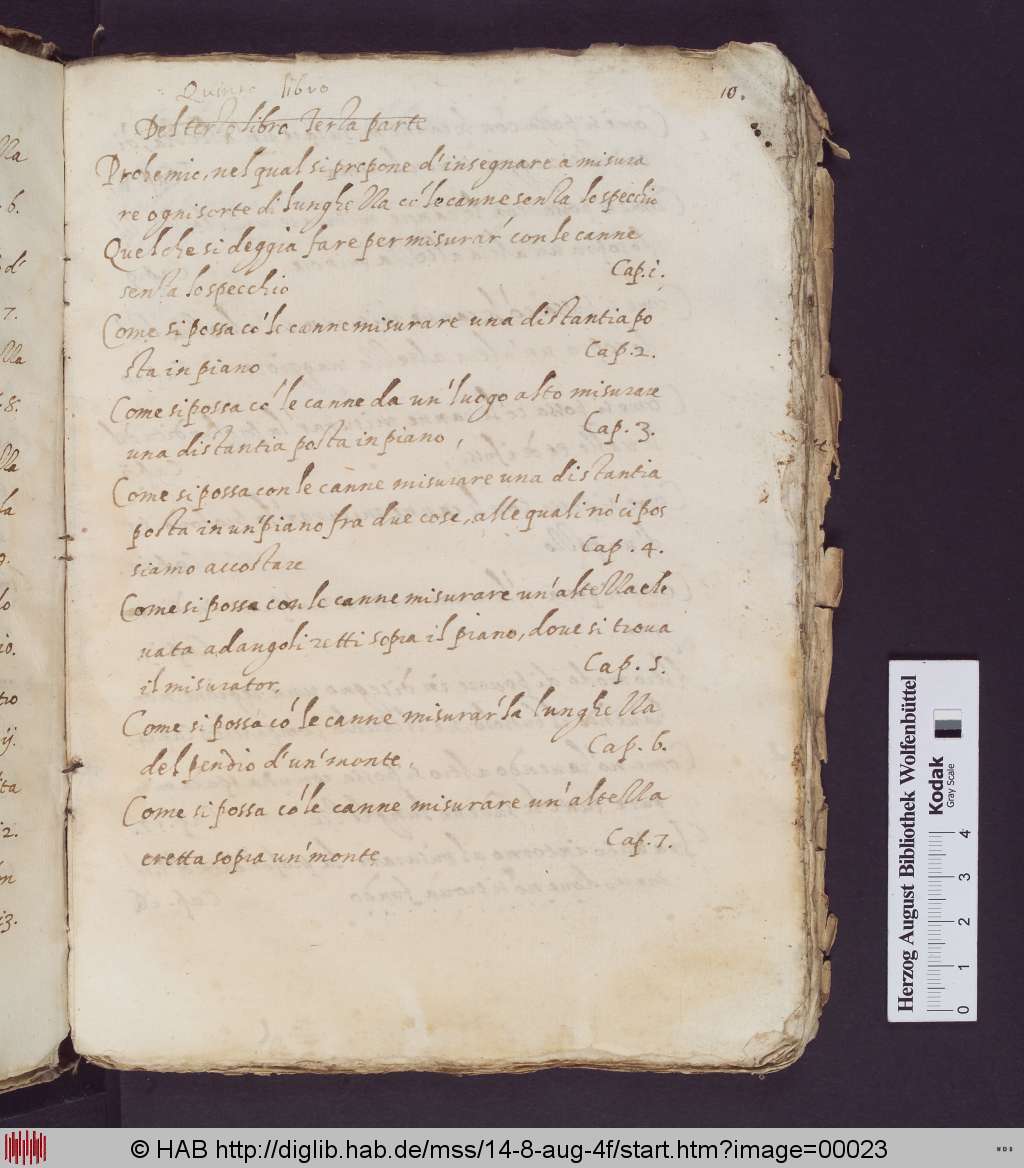 Quinto libro
10.
Del terzo libro Terza parte
Prohemio, nel qual si propone d'insegnare a misura
re ogni sorte di lunghezza cō le canne senza lo specchio
Quel che si deggia fare per misurar' con le canne
senza lo specchio Cap. i.
Come si possa cō le canne misurare una distantia po
sta in piano Cap. 2.
Come si possa cō le canne da un' luogo alto misurare
una distantia posta in piano, Cap. 3.
Come si possa con le canne misurare una distantia
posta in un' piano fra due cose, alle quali nō ci pos
siamo accostare Cap. 4.
Come si possa con le canne misurare un' altezza ele
vata ad angoli retti sopra il piano, dove si trova
il misurator. Cap. 5.
Come si possa cō le canne misurar' la lunghezza
del pendio d'un' monte. Cap. 6.
Come si possa cō le canne misurare un' altezza
eretta sopra un' monte Cap. 7.
lla
6.
d'
7.
lla
8.
lla
la
9.
lo
io.
tro
ij.
ita
i2.
i3.
Herzog August Bibliothek Wolfenbüttel
Kodak
Gray Scale
0 1 2 3 4
© HAB http://diglib.hab.de/mss/14-8-aug-4f/start.htm?image=00023